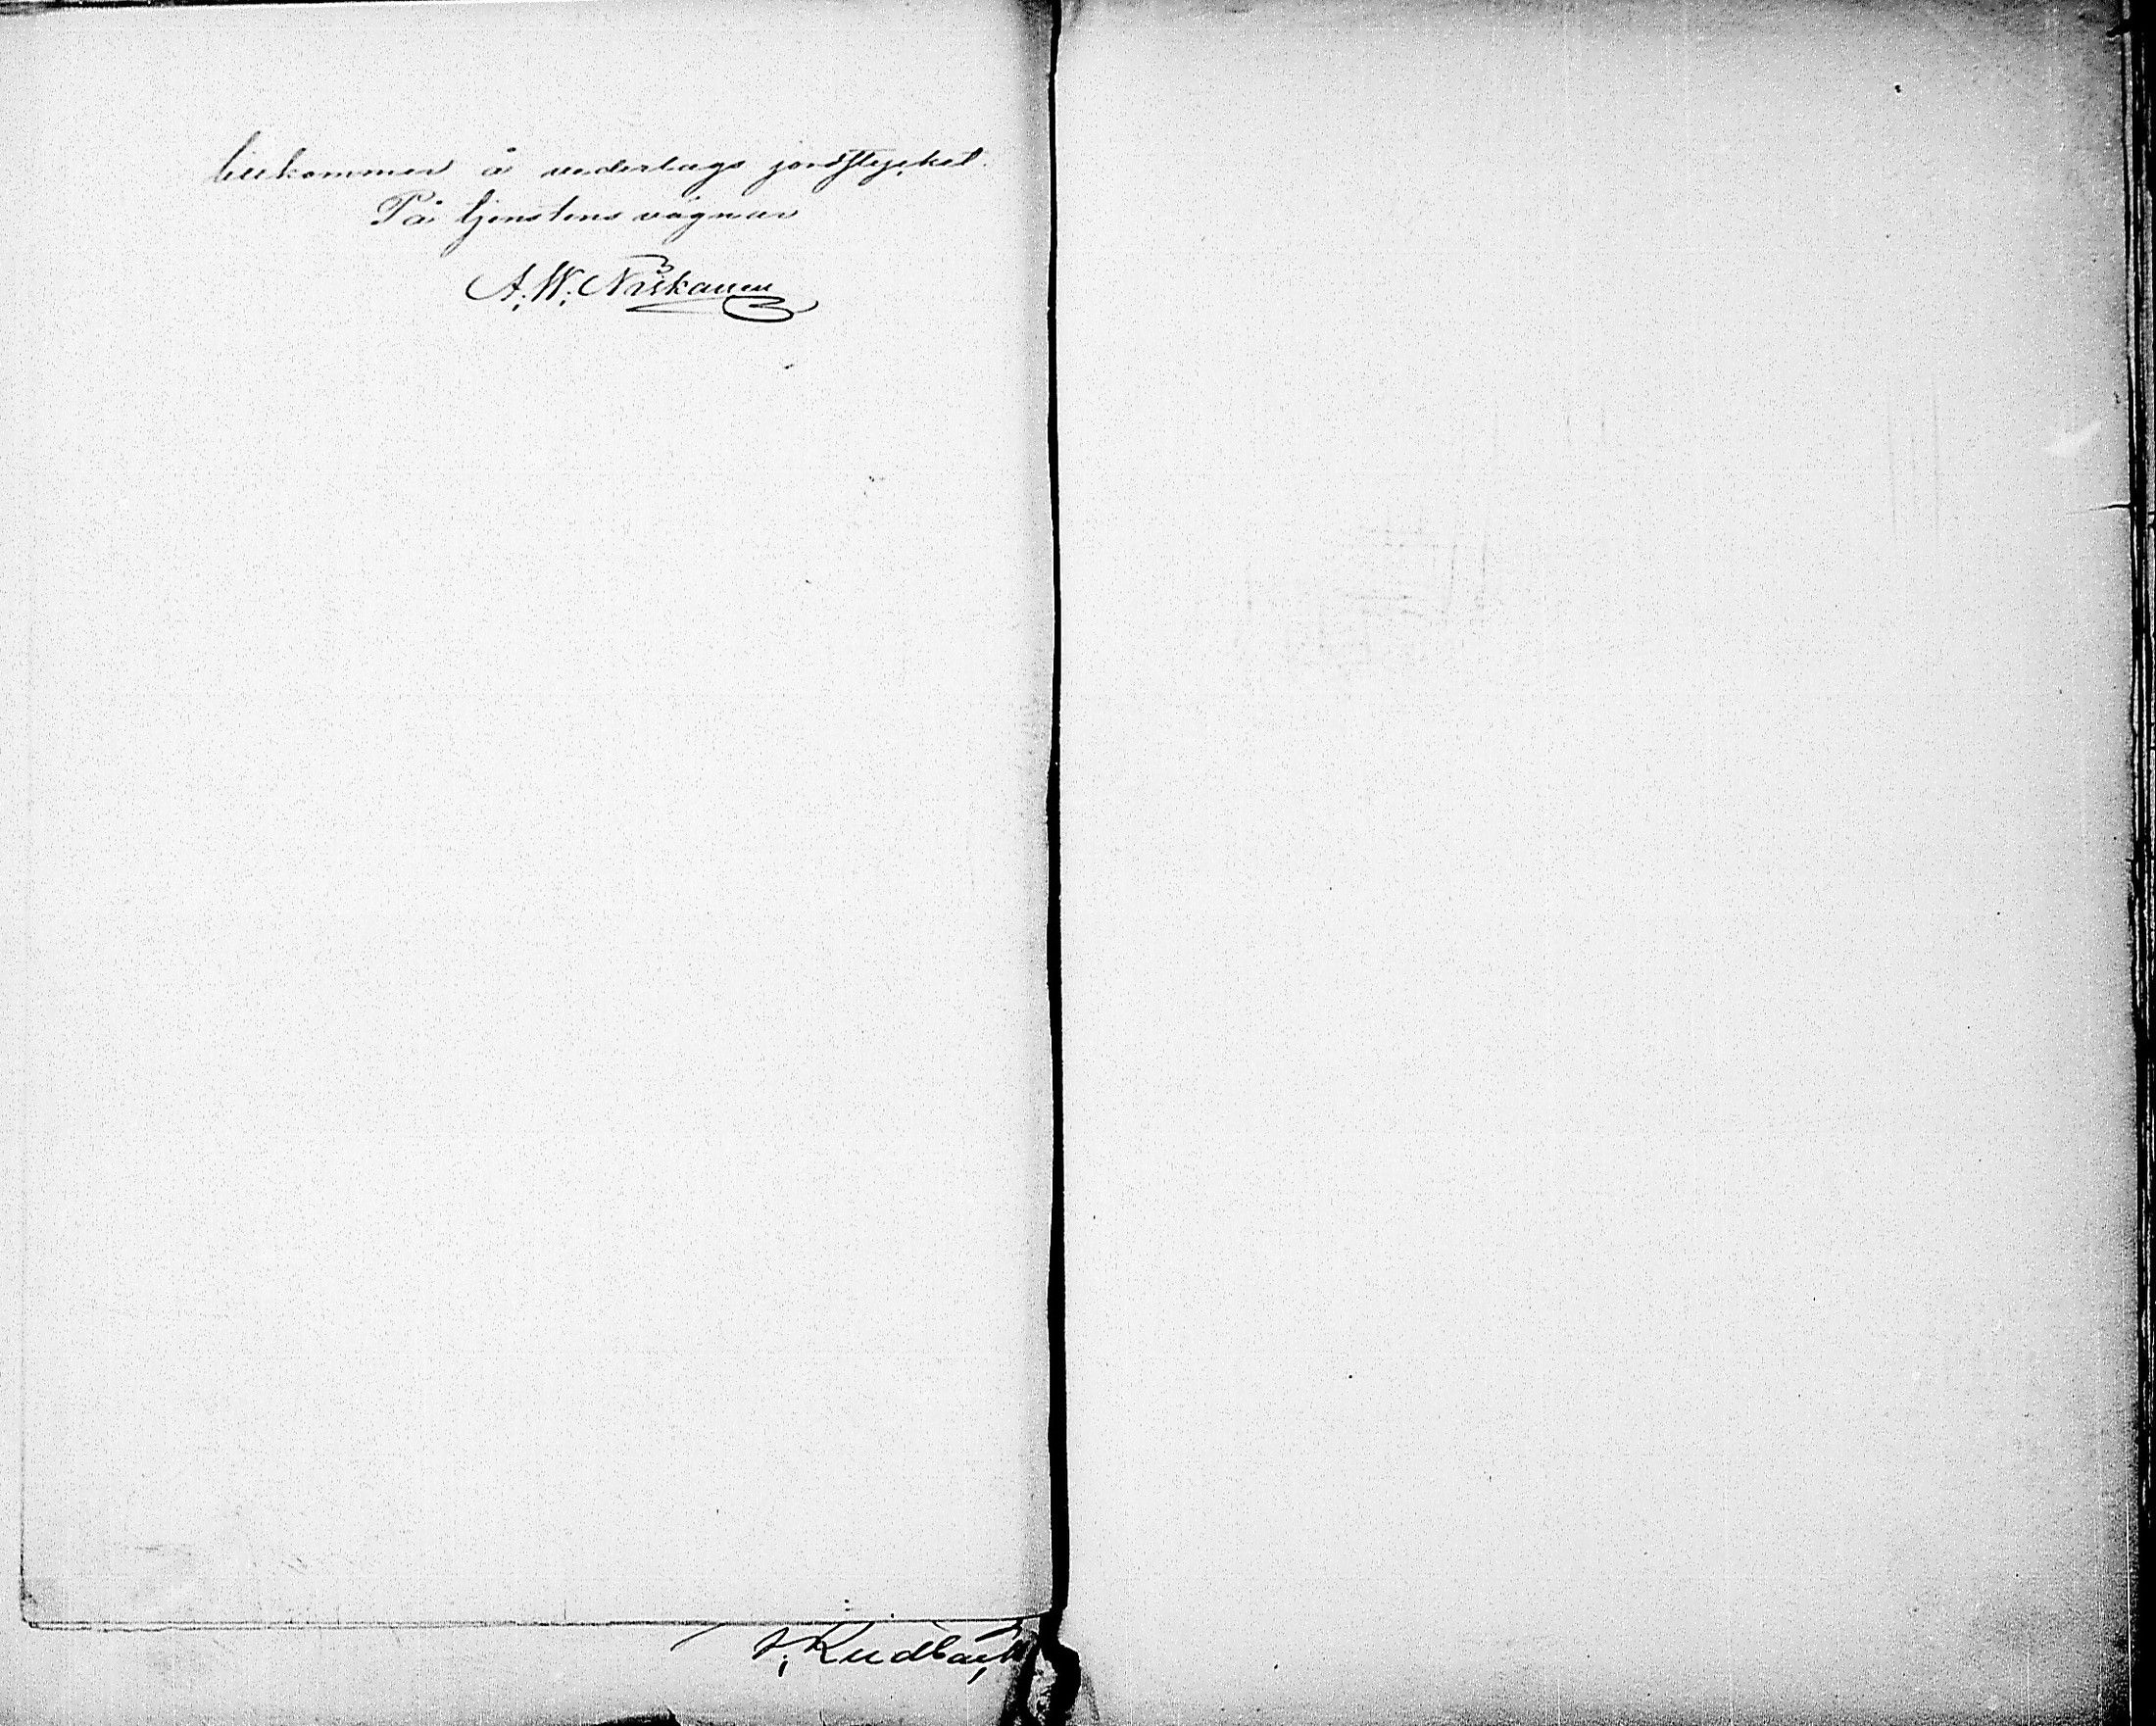 tillkommer å underlags jordstycket.
På tjenstens vägnar
A. W. Niskanen
Rudbäck